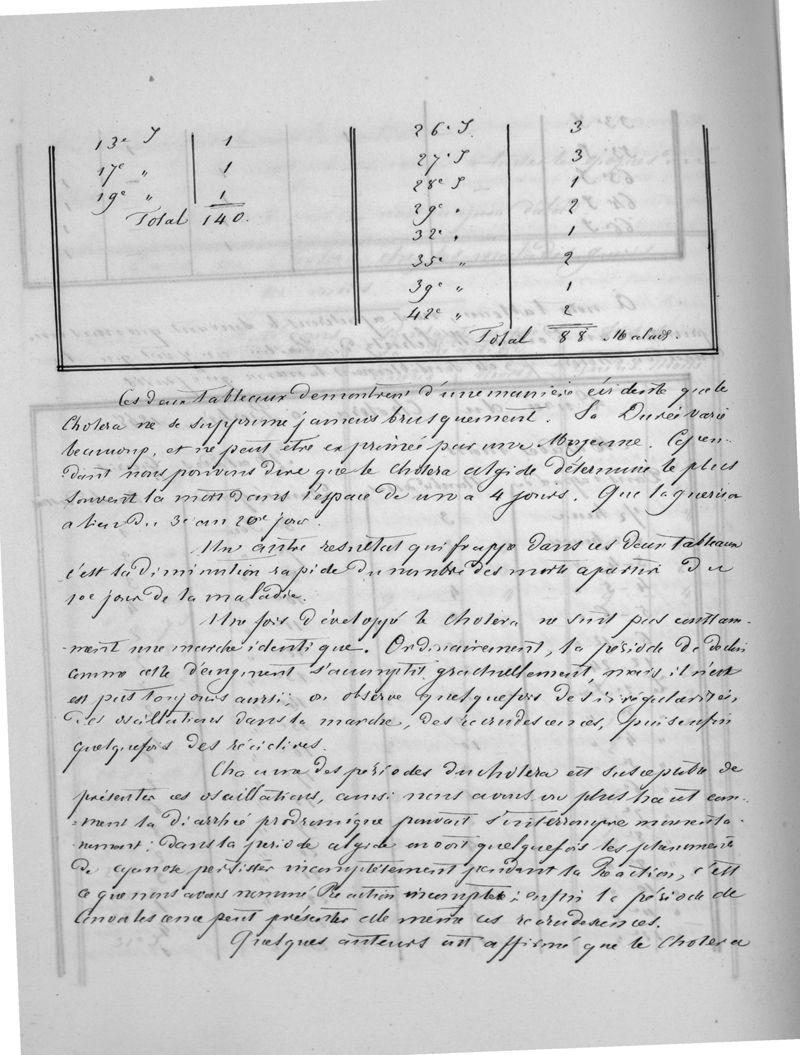 13e J 1
17e " 1
19e " 1
Total 140.
26e J. 3
27e J 3
28e J 1
29e " 2
32e " 1
35e " 2
39e " 1
42e " 2
Total 88 Malads.
Ces deux tableaux demontrent d'une maniere évidente que le
Cholera ne se supprime jamais brusquement. Sa Durée varie
beaucoup, et ne peut etre exprimée par une Moyenne. Cepen-
dant nous pouvons dire que le cholera algide détermine le plus
souvent la mort dans l'espace de un a 4 jours. Que la guerison
a lieu du 3e au 20e jour.
Un autre resultat qui frappe dans ces deux tableaux
c'est la diminution rapide du nombre des morts a partir du
10e jour de la maladie.
Une fois développé le cholera ne suit pas constam-
-ment une marche identique. Ordinairement, la période de declin
comme celle d'augment s'accomplit graduellement, mais il n'en
est pas toujours aussi; on observe quelquefois des irrégularités,
des oscillations dans la marche, des recrudescences, puis enfin
quelquefois des récidives.
Chacune des périodes du cholera est susceptible de
présenter ces oscillations, ainsi nous avons vu plus haut com-
-ment la diarrhée prodromique pouvait s'interrompre momenta-
-nement; dans la periode algide on voit quelquefois les phenomenes
de cyanose persister incomplétement pendant la Reaction, c'est
ce que nous avons nommé Reaction incomplete; enfin la période de
Convalescence peut présenter elle meme ces recrudescences.
Quelques auteurs ont affirmé que le Cholera